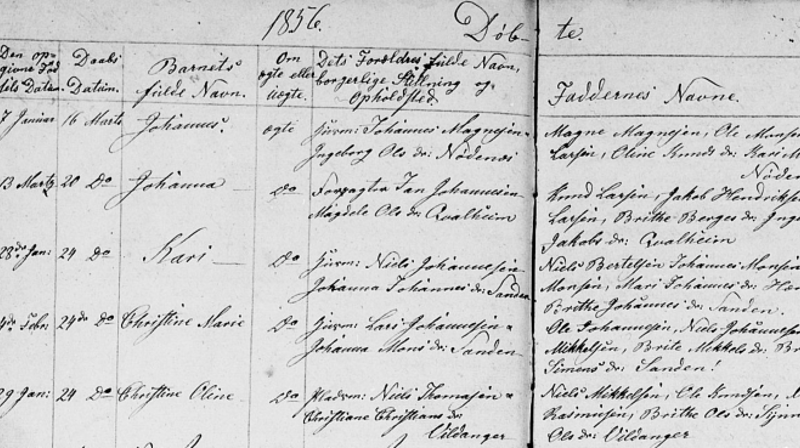 1856. Døb- te.
Den op- Daabs Barnets Om Dets Forældres fulde Navn,
givne Fød Datum. fulde Navn. ægte eller borgerlige Stilling og Faddernes Navne.
sels Datum. uægte. Opholdsted
7 Januar 16 Marts Johannes. ægte Gaarm: Johannes Magnesen Magne Magnesen, Ole Monsen
Ingeborg Ols dr: Nødenæs Larsen, Oline Knuds dr: Kari M
Nøden
13 Marts 20 Do Johanna Do Forpagter Jan Johannesen Knud Larsen, Jakob Hendriksen
Magdele Ols dr: Qvalheim Larsen, Brithe Børges dr: Inge
Jakobs dr: Qvalheim
28de Jan: 24 Do Kari Do Gaarm: Niels Johannesen Niels Bertelsen Johannes Monsen
Johanna Johannes dr: Sanden Monsen, Mari Johannes dr: Han
Brithe Johannes dr: Sanden.
4de Febr: 24de Do Christine Marie Do Gaarm: Lars Johannesen Ole Johannesen, Niels Johannesen
Johanna Mons dr: Sanden Mikkelsen, Brite Mikkels dr: Br
Simens dr: Sanden!
29 Jan: 24 Do Christine Oline Do Pladsm: Niels Thomasen Niels Mikkelsen, Ole Knudsen,
Christiane Christians dr: Rasmusen, Brithe Ols dr:
Vildanger Ols dr: Vildanger